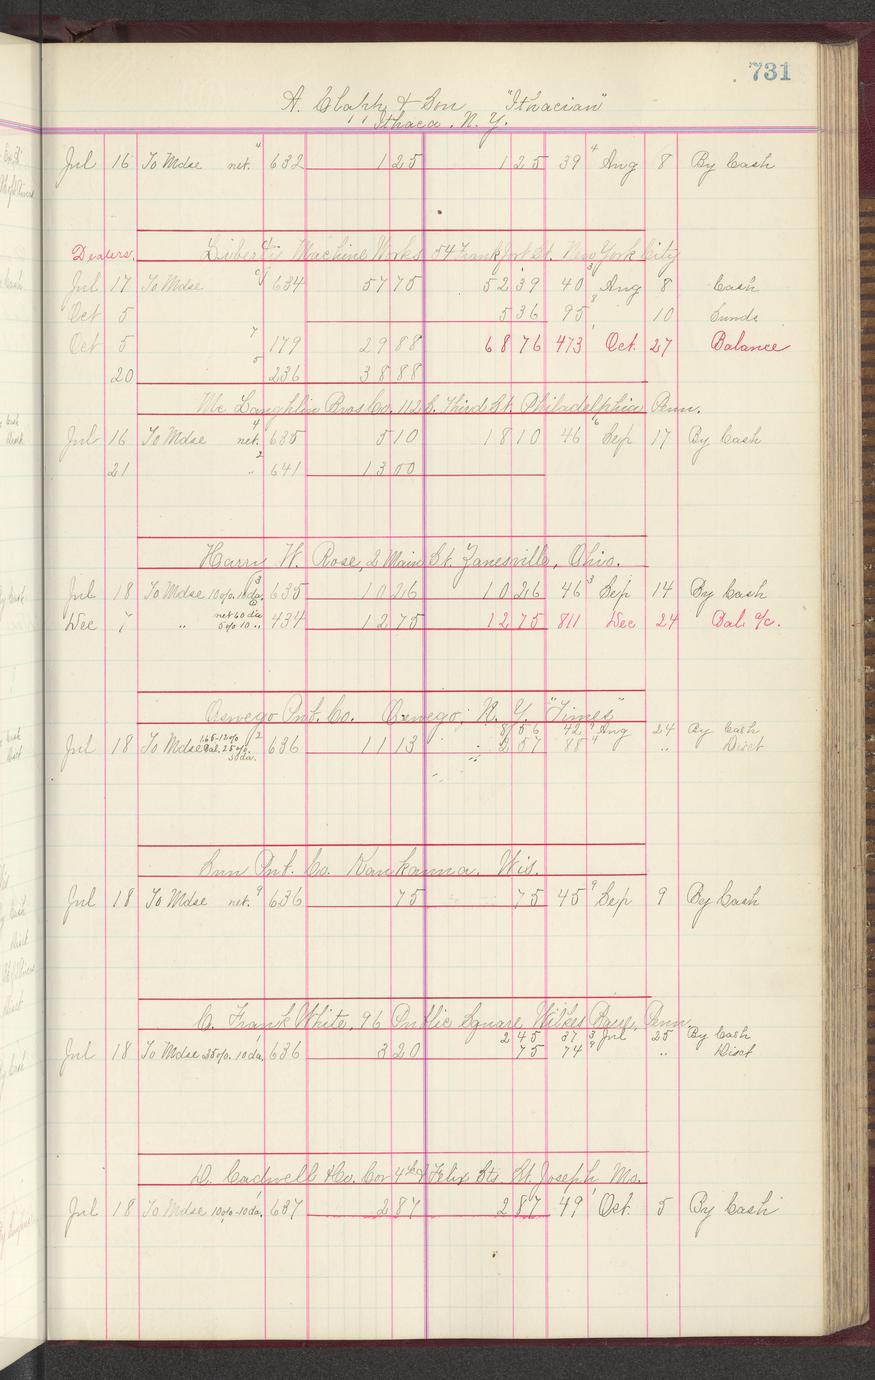 731
A. Clapp & Son "Ithacian"
Ithaca. N. Y.
Jul 16 To Mdse net. 632 1 25 1 25 39 Aug 8 By Cash
Dealers. Liberty Machine Works 54 Frankfort St. New York City
Jul 17 To Mdse 634 57 75 52 39 40 Aug 8 Cash
Oct 5 5 36 95 10 Sunds
Oct 5 179 29 88 68 76 473 Oct. 27 Balance
20 236 38 88
Mc Laughlin Bros Co. 112 S. Third St. Philadelphia Penn.
Jul 16 To Mdse net. 635 5 10 18 10 46 Sep 17 By Cash
21 " 641 13 00
Harry W. Rose, 2 Main St. Zanesville, Ohio.
Jul 18 To Mdse 10% 10 da. 635 10 26 10 26 46 Sep 14 By Cash
Dec 7 " net 60 da 5% 10 " 434 12 75 12 75 811 Dec 24 Bal. a/c.
Oswego Pnt. Co. Oswego, N. Y. "Times"
8 56 42 Aug 24 By Cash
Jul 18 To Mdse Bal. 25%. 30 da. 636 11 13 2 57 88 " Disct
Sun Pnt. Co. Kaukauna. Wis.
Jul 18 To Mdse net. 636 75 75 45 Sep 9 By Cash
C. Frank White. 96 Public Square, Wilkes Barre, Penn.
2 45 37 Jul 25 By Cash
Jul 18 To Mdse 35%. 10 da. 636 3 20 75 74 " Disct
D. Cadwell & Co. Cor 4th & Felix Sts. St. Joseph, Mo.
Jul 18 To Mdse 10%-10 da. 637 2 87 2 87 49 Oct. 5 By Cash